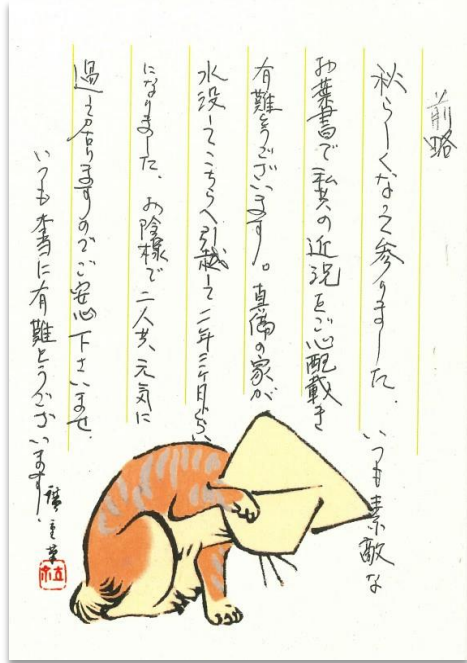 前略
秋らしくなって参りました。いつも素敵な
お葉書で私共の近況をご心配戴き
有難とうございます。真備の家が
水没してこちらへ引越して二年三ヶ月くらい
になりました。お陰様で二人共、元気に
過して居りますのでご安心下さいませ。
いつも本当に有難とうございます。
廣重筆